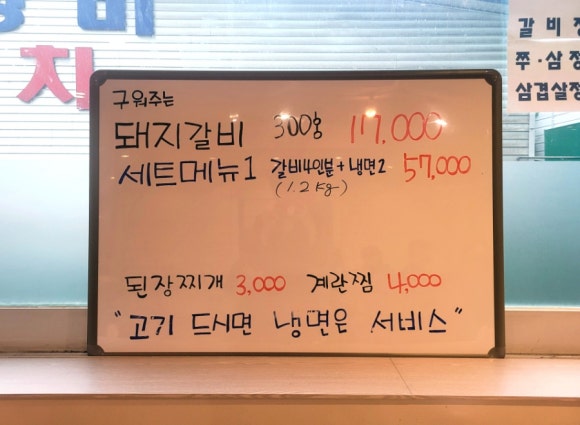 갈비
치
갈비정
쭈·삼정
삼겹살정
구워주는
돼지갈비 300g 17,000
세트메뉴1 갈비4인분+냉면2 57,000
(1.2kg)
된장찌개 3,000 계란찜 4,000
"고기 드시면 냉면은 서비스"